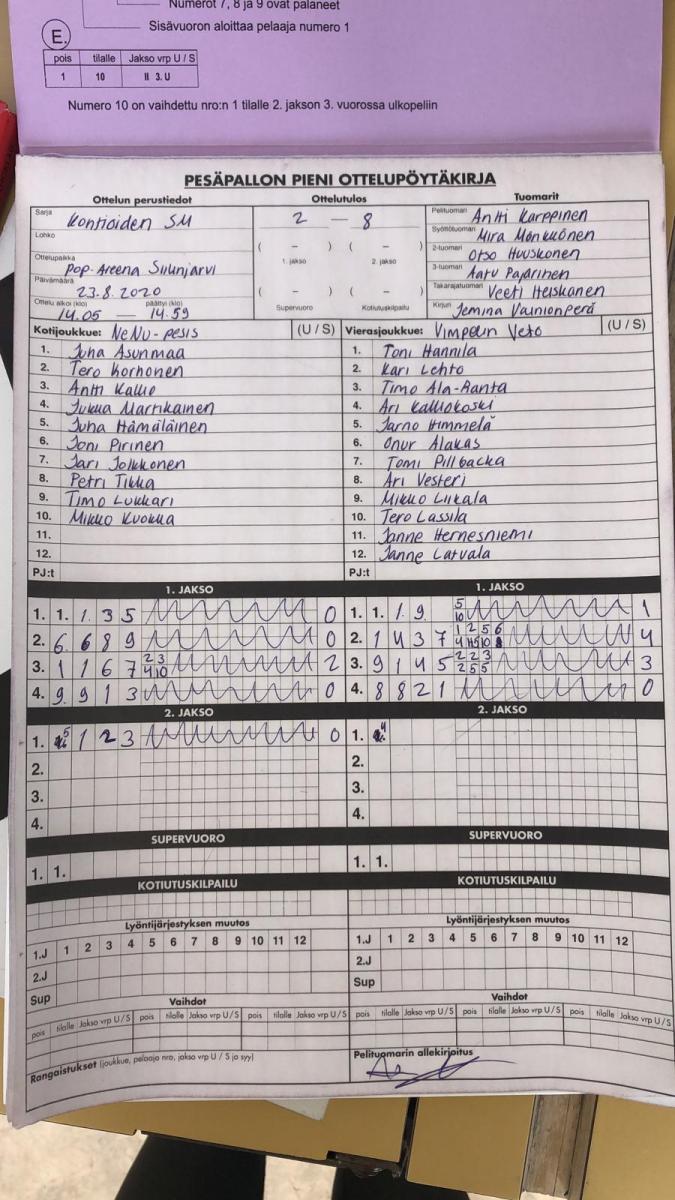 Numerot 7, 8 ja 9 ovat palaneet
Sisävuoron aloittaa pelaaja numero 1
E.
pois tilalle Jakso vrp U / S
1 10 II 3. U
Numero 10 on vaihdettu nro:n 1 tilalle 2. jakson 3. vuorossa ulkopeliin
PESÄPALLON PIENI OTTELUPÖYTÄKIRJA
Ottelun perustiedot Ottelutulos Tuomarit
Sarja Kontioiden SM 2 – 8 Pelituomari Antti Karppinen
Lohko Syöttötuomari Mira Mönkkönen
Ottelupaikka Pop-Areena Siilinjärvi ( – ) ( – ) 2-tuomari Otso Huuskonen
1. jakso 2. jakso 3-tuomari Aatu Pajarinen
Päivämäärä 23.8.2020 ( – ) ( – ) Takarajatuomari Veeti Heiskanen
Ottelu alkoi (klo) 14.05 – päättyi (klo) 14.59 Supervuoro Kotiutuskilpailu Kirjuri Jemina Vainionperä
Kotijoukkue: NeNu-pesis (U / S) Vierasjoukkue: Vimpelin Veto (U / S)
1. Juha Asunmaa 1. Toni Hannila
2. Tero Korhonen 2. Kari Lehto
3. Antti Kallio 3. Timo Ala-Ranta
4. Jukka Martikainen 4. Ari Kalliokoski
5. Juha Hämäläinen 5. Jarno Himmelä
6. Joni Pirinen 6. Onur Alakas
7. Jari Jolkkonen 7. Tomi Pillbacka
8. Petri Tikka 8. Ari Vesteri
9. Timo Lukkari 9. Mikko Liikala
10. Mikko Kuokka 10. Tero Lassila
11. 11. Janne Hernesniemi
12. 12. Janne Latvala
PJ:t PJ:t
1. JAKSO 1. JAKSO
1. 1. 1 3 5 0 1. 1. 1 9 5 10 1
2. 6 6 8 9 0 2. 1 4 3 7 4
3. 1 1 6 7 2 3 4 10 2 3. 9 1 4 5 2 2 3 2 5 5 3
4. 9 9 1 3 0 4. 8 8 2 1 0
2. JAKSO 2. JAKSO
1. 5 1 2 3 0 1. 4
2. 2.
3. 3.
4. 4.
SUPERVUORO SUPERVUORO
1. 1. 1. 1.
KOTIUTUSKILPAILU KOTIUTUSKILPAILU
Lyöntijärjestyksen muutos Lyöntijärjestyksen muutos
1.J 1 2 3 4 5 6 7 8 9 10 11 12 1.J 1 2 3 4 5 6 7 8 9 10 11 12
2.J 2.J
Sup Sup
Vaihdot Vaihdot
pois tilalle Jakso vrp U / S pois tilalle Jakso vrp U / S pois tilalle Jakso vrp U / S pois tilalle Jakso vrp U / S pois tilalle Jakso vrp U / S pois tilalle Jakso vrp U / S
Rangaistukset (joukkue, pelaaja nro, jakso vrp U / S ja syy) Pelituomarin allekirjoitus